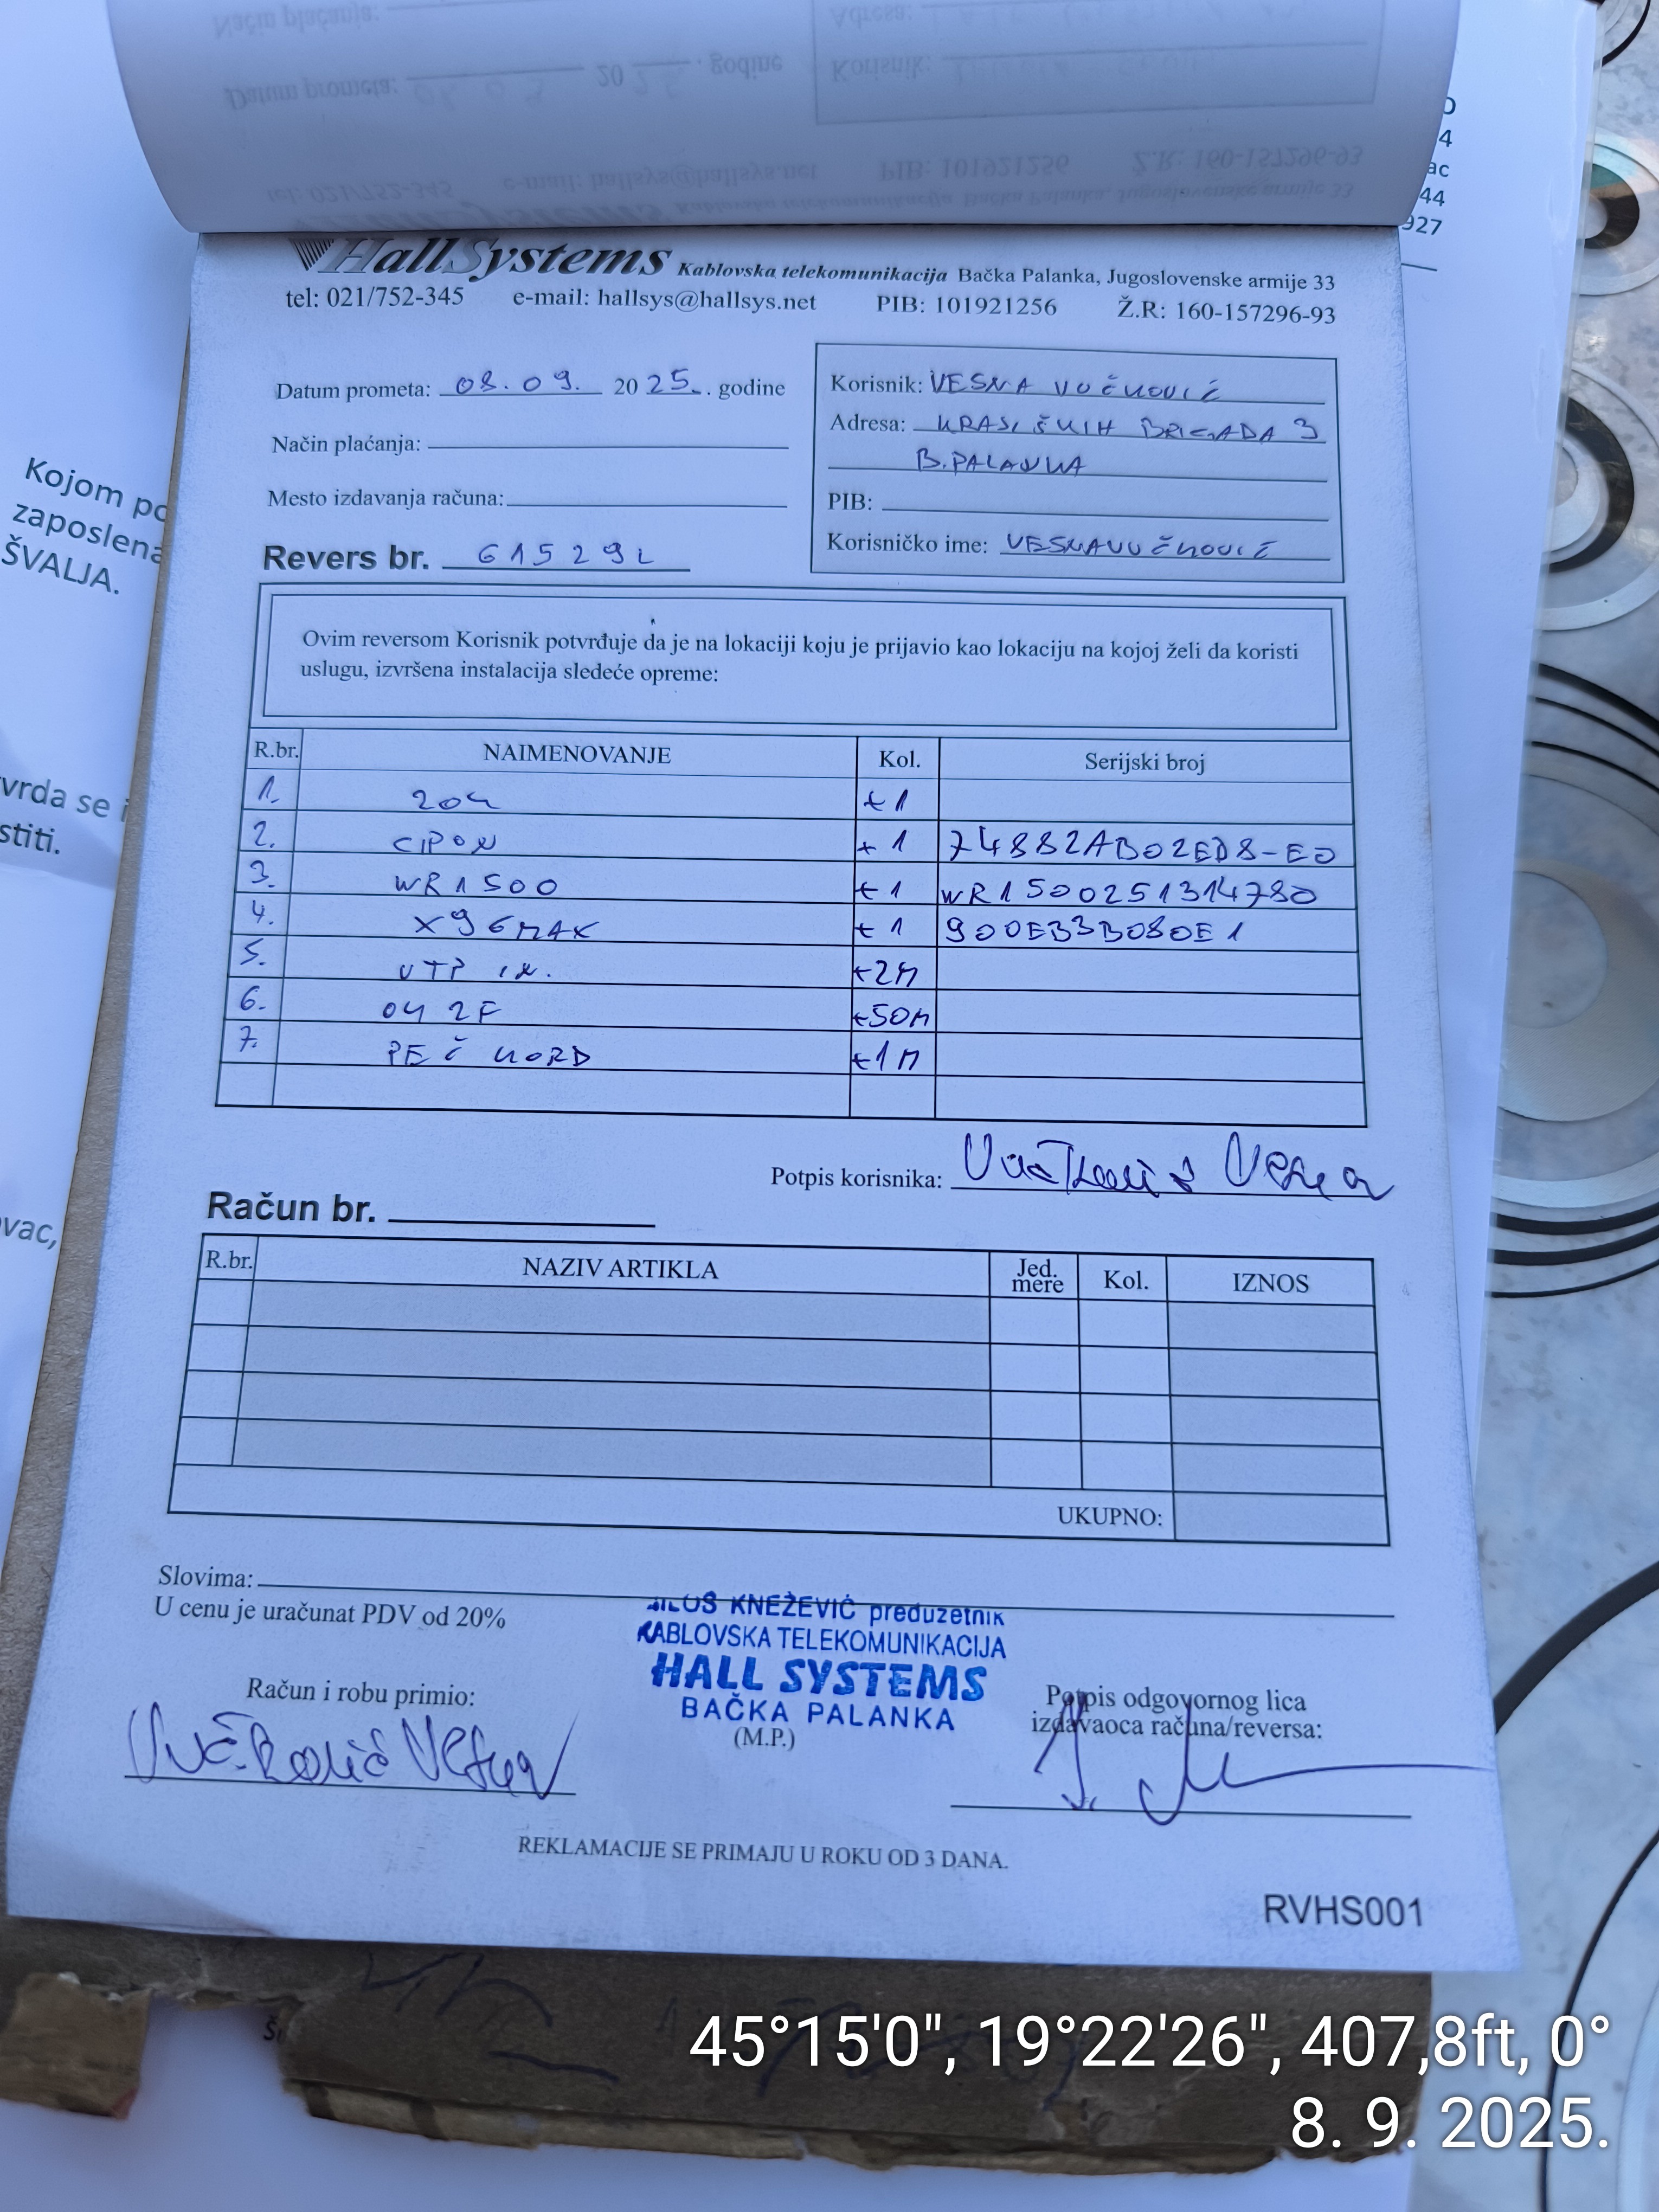 HallSystems Kablovska telekomunikacija Bačka Palanka, Jugoslovenske armije 33
tel: 021/752-345 e-mail: hallsys@hallsys.net PIB: 101921256 Ž.R: 160-157296-93
Datum prometa: 08.09. 2025. godine
Način plaćanja:
Mesto izdavanja računa:
Revers br. 615292
Korisnik: VESNA VUČKOVIĆ
Adresa: KRAJIŠKIH BRIGADA 3
B.PALANKA
PIB:
Korisničko ime: VESNAVUČKOVIĆ
Ovim reversom Korisnik potvrđuje da je na lokaciji koju je prijavio kao lokaciju na kojoj želi da koristi
uslugu, izvršena instalacija sledeće opreme:
R.br. NAIMENOVANJE Kol. Serijski broj
1. ZOK +1
2. GPON +1 74882AB02ED8-E0
3. WR1500 +1 WR1500251314780
4. X96MAX +1 900EB3B080E1
5. UTP +2M
6. OK 2F +50M
7. PEČ KORD +1M
Potpis korisnika: Vučković Vesna
Račun br.
R.br. NAZIV ARTIKLA Jed. mere Kol. IZNOS
UKUPNO:
Slovima:
U cenu je uračunat PDV od 20%
KNEŽEVIĆ preduzetnik
KABLOVSKA TELEKOMUNIKACIJA
HALL SYSTEMS
BAČKA PALANKA
(M.P.)
Račun i robu primio:
Vučković Vesna
Potpis odgovornog lica
izdavaoca računa/reversa:
REKLAMACIJE SE PRIMAJU U ROKU OD 3 DANA.
RVHS001
Kojom
zaposlena
ŠVALJA.
se
stiti.
vac,
44
927
45°15'0", 19°22'26", 407,8ft, 0°
8. 9. 2025.